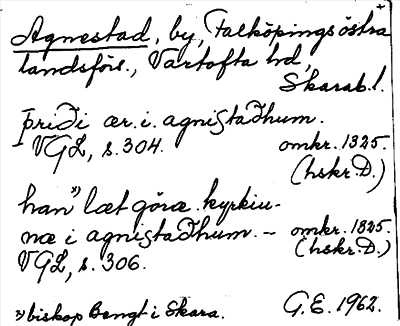 Agnestad, by, Falköpings östra
landsförs., Vartofta hd,
Skarab.l.
þriði ær. i. agnistaðhum.
VGL, s. 304. omkr. 1325.
(hskr. D.)
han *) læt göræ. kyrkiu-
næ i agnistaðhum. – omkr. 1325.
VGL, s. 306. (hskr. D.)
*) biskop Bengt i Skara. G.E. 1962.